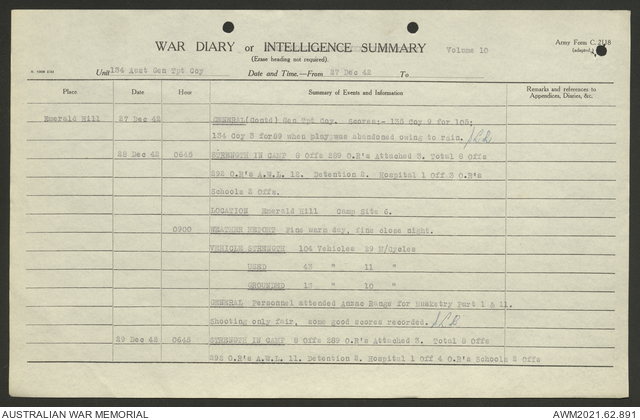 WAR DIARY or INTELLIGENCE SUMMARY Volume 10
Army Form C. 2118
(Erase heading not required).
(adapted)
Unit 134 Aust Gen Tpt Coy Date and Time.—From 27 Dec 42 To
Place Date Hour Summary of Events and Information Remarks and references to Appendices, Diaries, &c.
Emerald Hill 27 Dec 42 GENERAL (Contd) Gen Tpt Coy. Scores:- 132 Coy 9 for 103;
134 Coy 3 for 89 when play was abandoned owing to rain.
28 Dec 42 0645 STRENGTH IN CAMP 9 Offs 289 O.R's Attached 3. Total 9 Offs
292 O.R's A.W.L. 12. Detention 2. Hospital 1 Off 3 O.R's
Schools 2 Offs.
LOCATION Emerald Hill Camp Site 6.
0900 WEATHER REPORT Fine warm day, fine close night.
VEHICLE STRENGTH 104 Vehicles 29 M/Cycles
USED 43 " 11 "
GROUNDED 13 " 10 "
GENERAL Personnel attended Anzac Range for musketry Part 1 & 11.
Shooting only fair, some good scores recorded.
29 Dec 42 0645 STRENGTH IN CAMP 9 Offs 289 O.R's Attached 3. Total 9 Offs
292 O.R's A.W.L. 11. Detention 2. Hospital 1 Off 4 O.R's Schools 2 Offs
AUSTRALIAN WAR MEMORIAL AWM2021.62.891